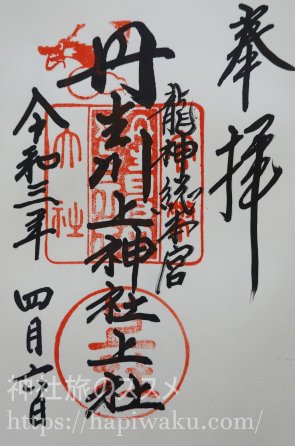 奉拝
龍神総本宮
丹生川上神社上社
令和三年
四月六日
大社
神社旅のススメ
https://hapiwaku.com/